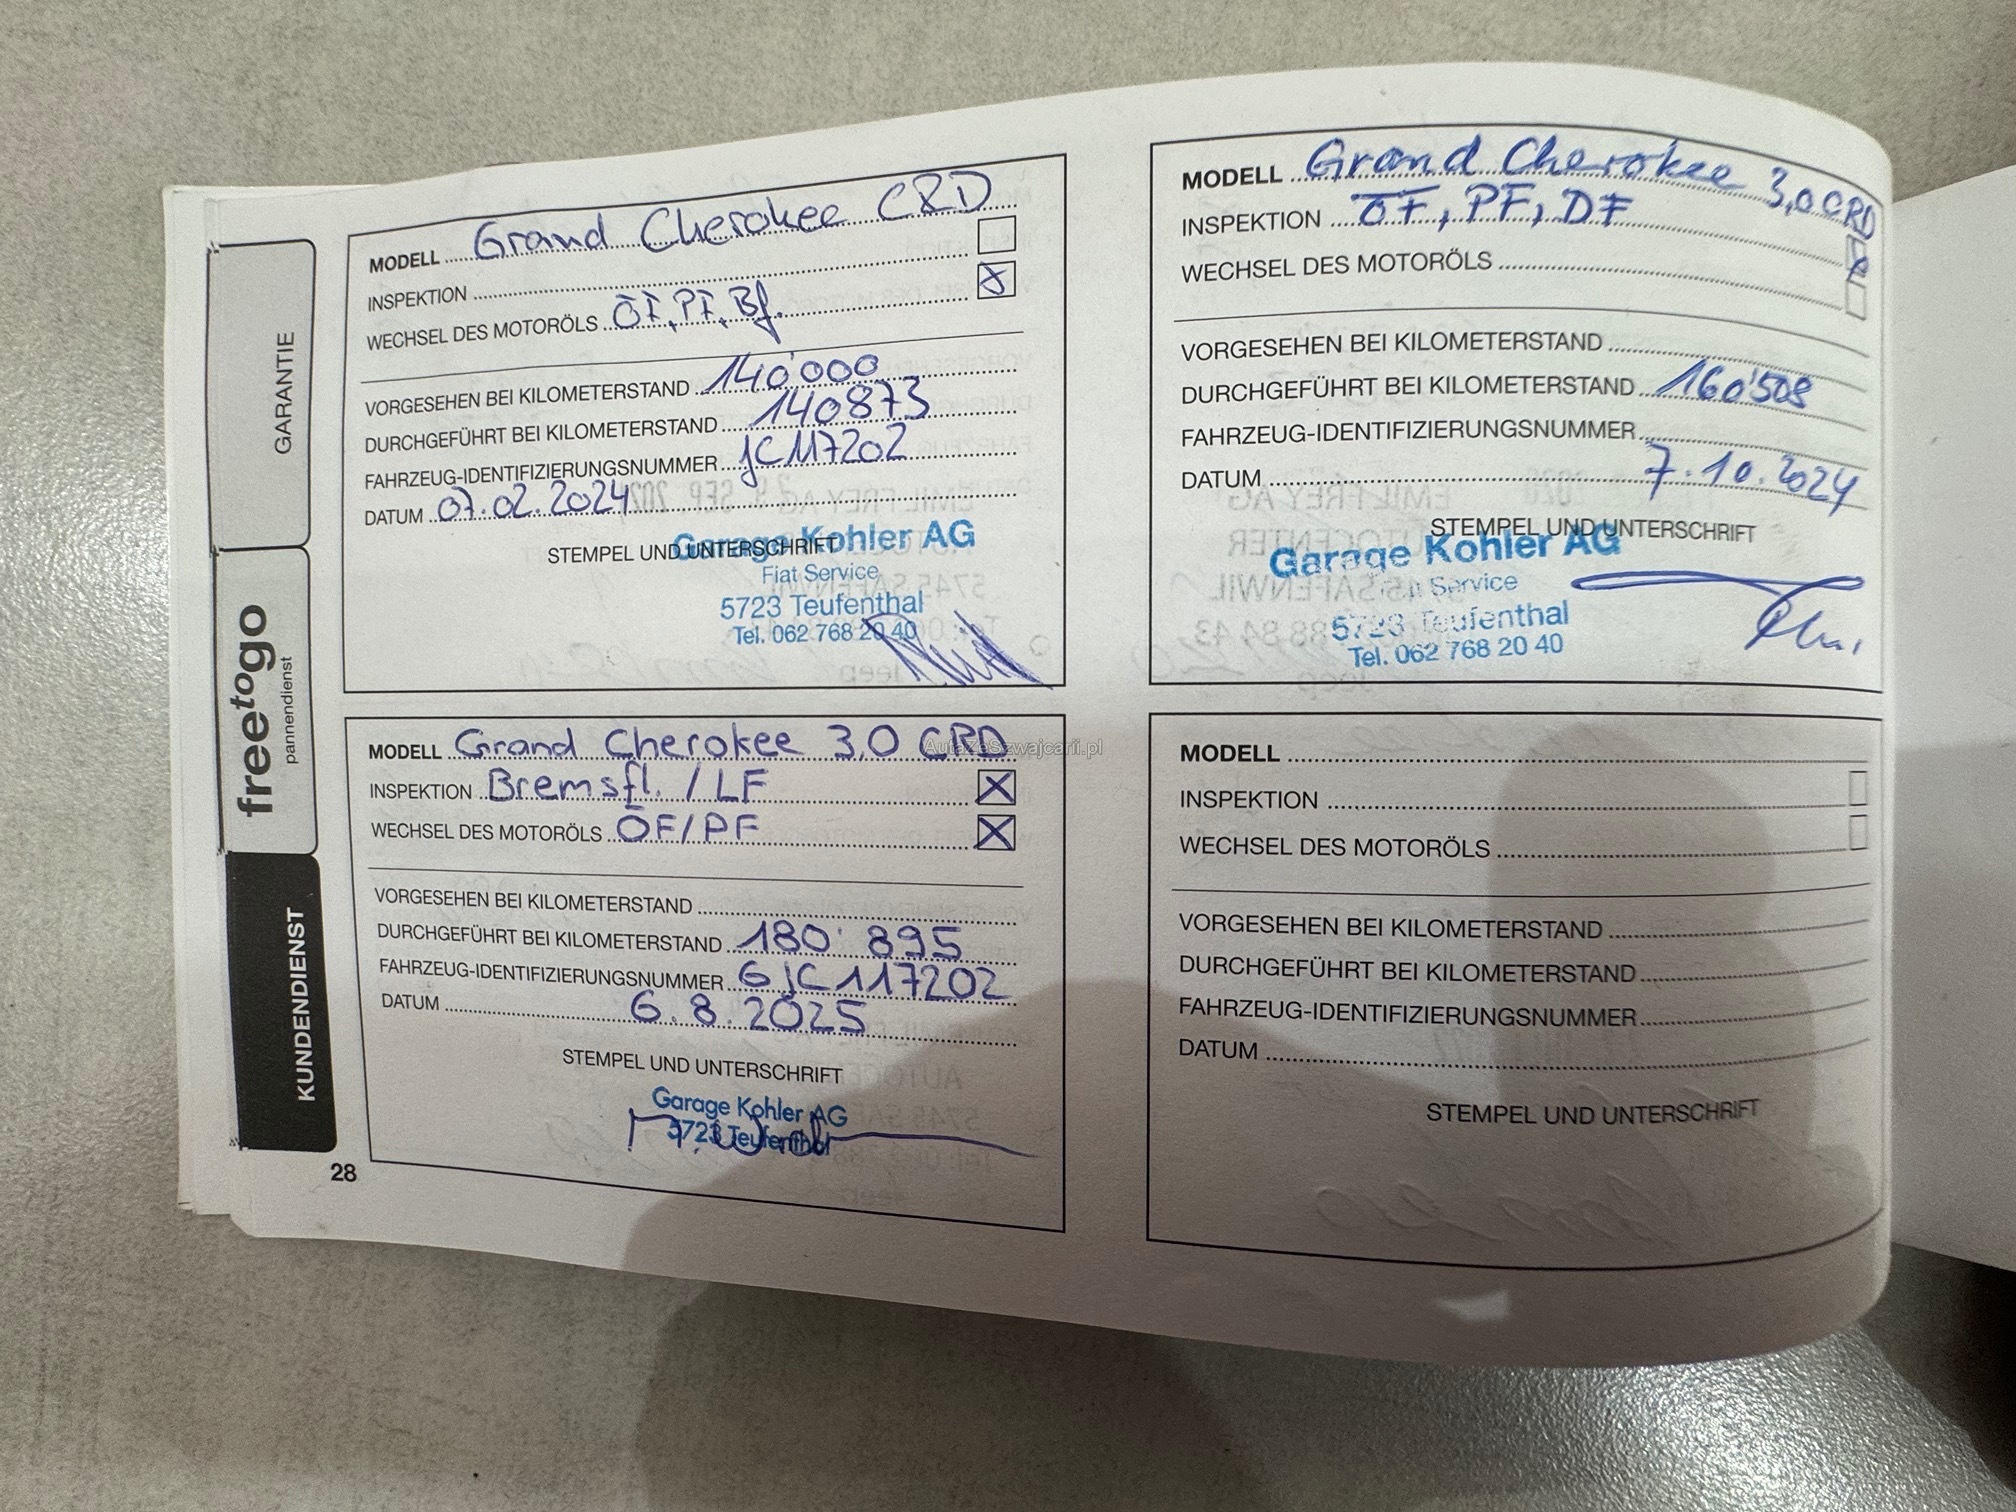 GARANTIE
freetogo
pannendienst
KUNDENDIENST
MODELL Grand Cherokee CRD
INSPEKTION
WECHSEL DES MOTORÖLS ÖF, PF, Bf.
VORGESEHEN BEI KILOMETERSTAND 140'000
DURCHGEFÜHRT BEI KILOMETERSTAND 140873
FAHRZEUG-IDENTIFIZIERUNGSNUMMER JC117202
DATUM 07.02.2024
STEMPEL UND UNTERSCHRIFT
Garage Kohler AG
Fiat Service
5723 Teufenthal
Tel. 062 768 20 40
MODELL Grand Cherokee 3,0 CRD
INSPEKTION ÖF, PF, DF
WECHSEL DES MOTORÖLS
VORGESEHEN BEI KILOMETERSTAND
DURCHGEFÜHRT BEI KILOMETERSTAND 160'508
FAHRZEUG-IDENTIFIZIERUNGSNUMMER
DATUM 7.10.2024
STEMPEL UND UNTERSCHRIFT
Garage Kohler AG
Service
5723 Teufenthal
Tel. 062 768 20 40
MODELL Grand Cherokee 3,0 CRD
INSPEKTION Bremsfl. / LF
WECHSEL DES MOTORÖLS ÖF/PF
VORGESEHEN BEI KILOMETERSTAND
DURCHGEFÜHRT BEI KILOMETERSTAND 180'895
FAHRZEUG-IDENTIFIZIERUNGSNUMMER GJC117202
DATUM 6.8.2025
STEMPEL UND UNTERSCHRIFT
Garage Kohler AG
5723 Teufenthal
MODELL
INSPEKTION
WECHSEL DES MOTORÖLS
VORGESEHEN BEI KILOMETERSTAND
DURCHGEFÜHRT BEI KILOMETERSTAND
FAHRZEUG-IDENTIFIZIERUNGSNUMMER
DATUM
STEMPEL UND UNTERSCHRIFT
28
AutaZeSzwajcarii.pl